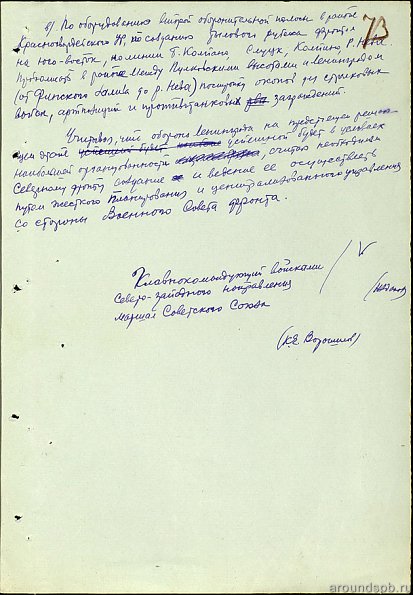 73
в) По оборудованию второй оборонительной полосы в районе
Красногвардейского УР, по созданию тылового рубежа фронтом
на юго-восток, по линии Слуцк, Колпино, р. Нева
в районе между Пулковскими высотами и Ленинградом
(от Финского залива до р. Нева) постройку окопов для стрелковых
войск, артиллерии и противотанковых заграждений.
Учитывая, что оборона Ленинграда на
этапе успешной будет в условиях
наибольшей организованности считаю необходимым
Северному фронту создание и ведение её осуществлять
путем жесткого планирования и централизованного управления
со стороны Военного Совета фронта.
Главнокомандующий войсками
Северо-западного направления
Маршал Советского Союза
(Жданов)
(К.Е. Ворошилов)
aroundspb.ru